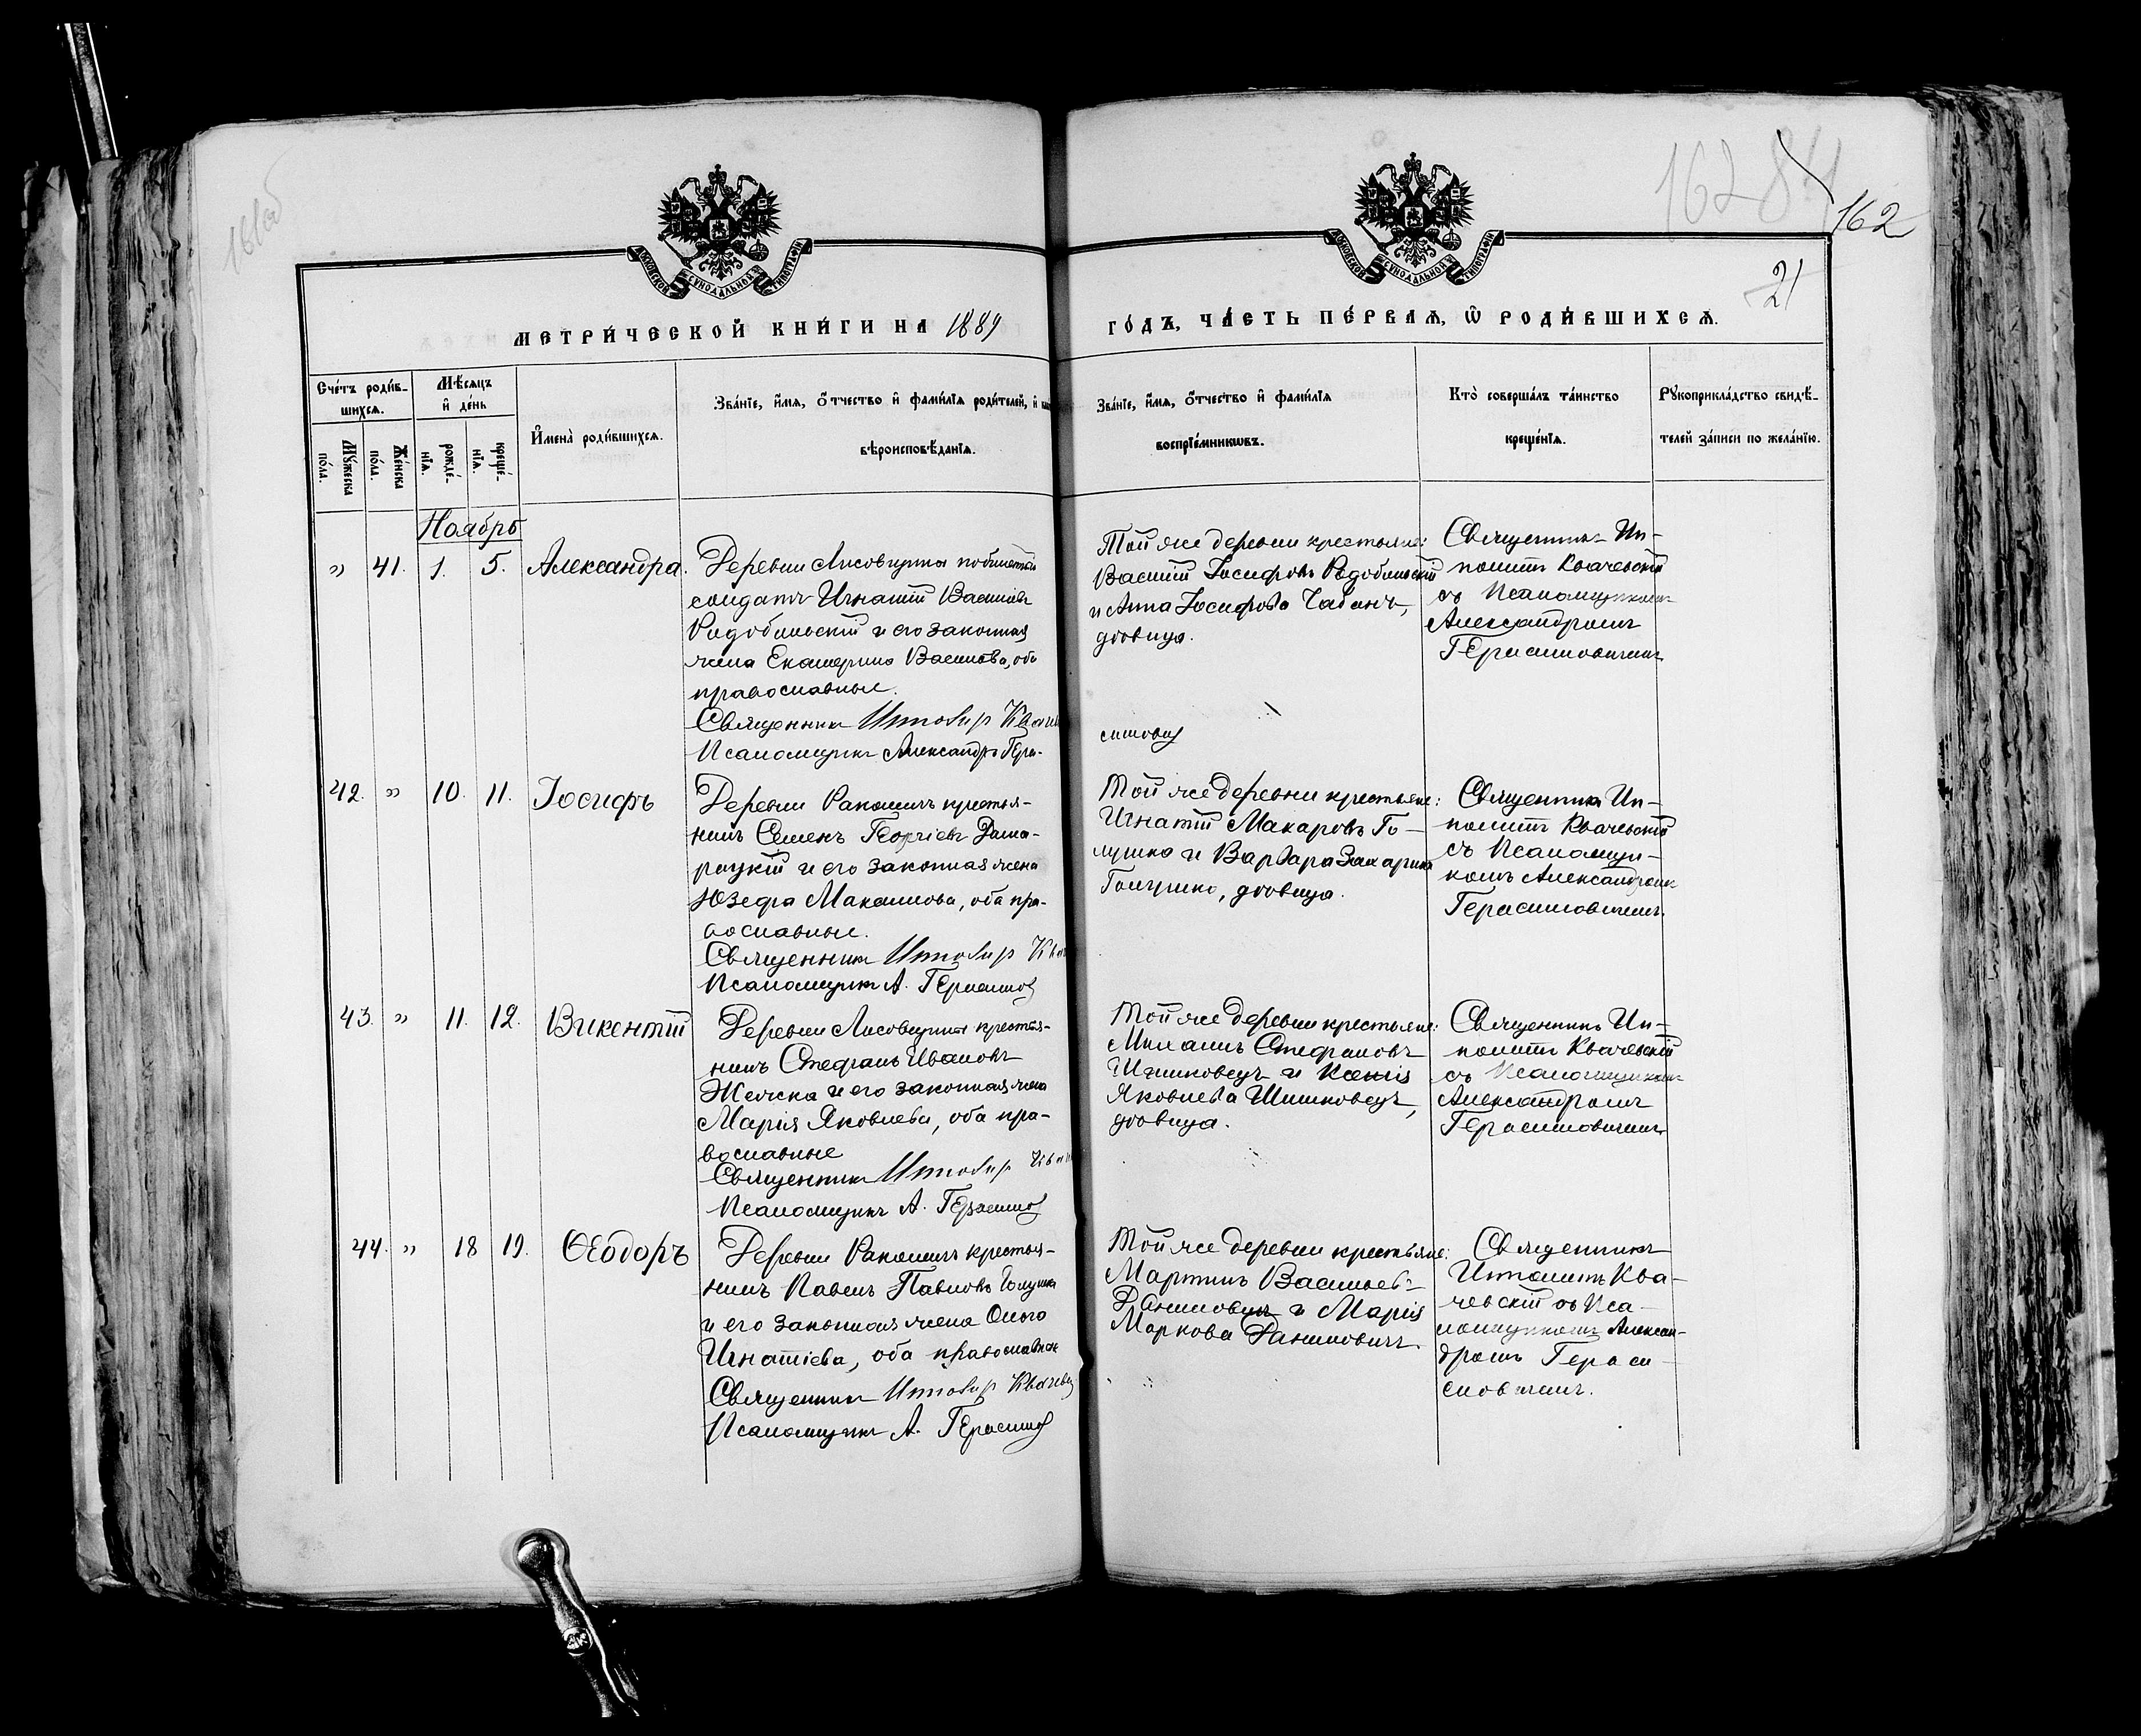 161об
162 84
162
21
МОСКОВСКОЙ СѴНОДАЛЬНОЙ ТИПОГРАФІИ
МОСКОВСКОЙ СѴНОДАЛЬНОЙ ТИПОГРАФІИ
МЕТРИ́ЧЕСКОЙ КНИ́ГИ НА 1889
ГО́ДЪ, ЧА́СТЬ ПЕ́РВАѦ, Ѽ РОДИ́ВШИХСѦ.
Сче́тъ роди́в-
шихсѧ.
Мꙋ́жеска
по́ла.
Же́нска
по́ла.
Мѣ́сѧцъ
и҆ де́нь
рожде́-
нїѧ.
креще́-
нїѧ.
И҆мена̀ роди́вшихсѧ.
Зва́нїе, и҆́мѧ, ѻ҆́тчество и҆ фами́лїѧ роди́телей, и҆
вѣроисповѣ́данїѧ.
Зва́нїе, и҆́мѧ, ѻ҆́тчество и҆ фами́лїѧ
воспрїе́мникѡвъ.
Кто̀ соверша́лъ та́инство
креще́нїѧ.
Рꙋкоприкла́дство свидѣ́-
телей за́писи по жела́нїю.
Ноябрь
" 41. 1. 5. Александра.
Деревни
солдатъ Игнатій Васильевъ
и его законная
жена Екатерина Васильева, оба
православные.
Священникъ
Псаломщикъ Александръ Гера-
Той же деревни крестьяне:
Василій Іосифовъ
и Анна Іосифова Чабанъ,
двовица.
симовичъ
Священникъ Ип-
политъ Квачевскій
съ Псаломщикомъ
Александромъ
Герасимовичемъ
42. " 10. 11. Іосифъ
Деревни крестья-
нинъ Семенъ Георгіевъ Дама-
рацкій и его законная жена
Юзефа Максимова, оба пра-
вославные.
Священникъ
Псаломщикъ А. Герасимов
Той же деревни крестьяне:
Игнатій Макаровъ Го-
лушко и Варвара Захарьина
Голушко, двовица.
Священникъ Ип-
политъ Квачевскій
съ Псаломщи-
комъ Александромъ
Герасимовичемъ.
43. " 11. 12. Викентій
Деревни крестья-
нинъ Стефанъ Ивановъ
и его законная жена
Марія Яковлева, оба пра-
вославные
Священникъ
Псаломщикъ А. Герасимов
Той же деревни крестьяне:
Стефановъ
Шишковецъ и Ксенія
Яковлева Шишковецъ,
двовица.
Священникъ Ип-
политъ Квачевскій
съ Псаломщикомъ
Александромъ
Герасимовичемъ
44. " 18 19. Ѳеодоръ
Деревни крестья-
нинъ Павелъ Павловъ Голушко
и его законная жена Ольга
Игнатіева, оба православные
Священникъ
Псаломщикъ А. Герасимов
Той же деревни крестьяне:
Мартинъ Васильевъ
Даниловичъ и Марія
Маркова Даниловичъ.
Священникъ
Ипполитъ Ква-
чевскій съ Пса-
ломщикомъ Алексан-
дромъ Гераси-
мовичемъ.